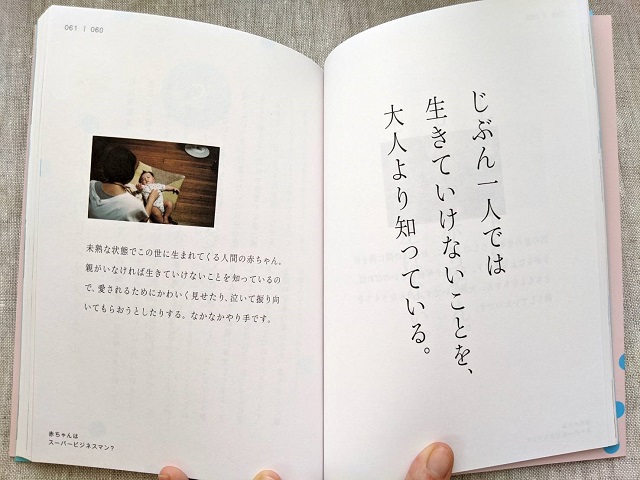 061 | 060
未熟な状態でこの世に生まれてくる人間の赤ちゃん。
親がいなければ生きていけないことを知っているの
で、愛されるためにかわいく見せたり、泣いて振り向
いてもらおうとしたりする。なかなかやり手です。
赤ちゃんは
スーパービジネスマン?
じぶん一人では
生きていけないことを、
大人より知っている。